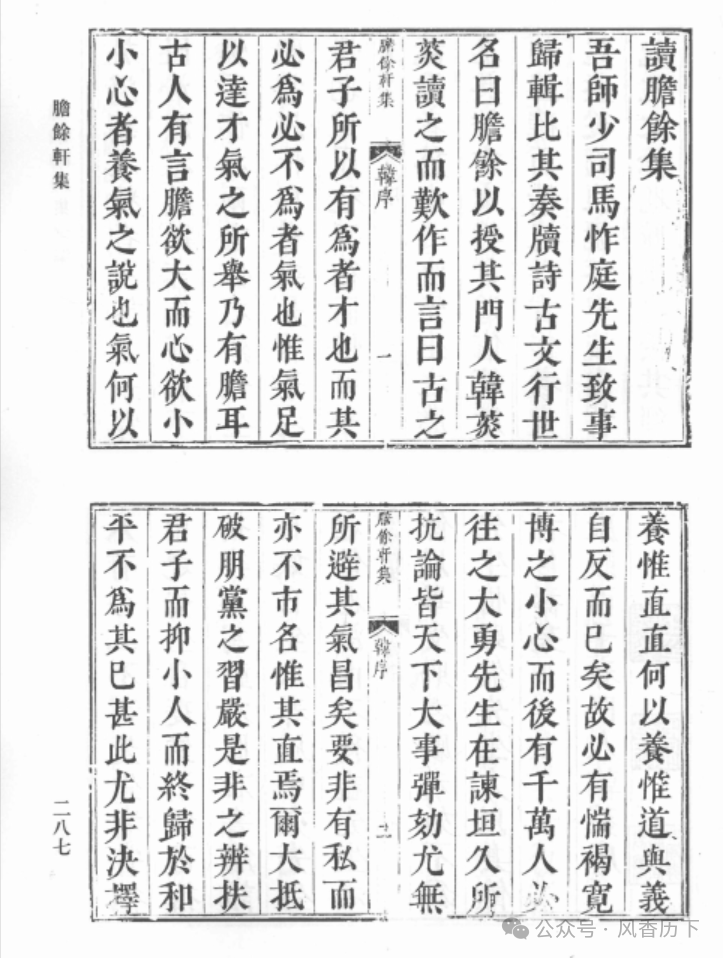 膽餘軒集
讀膽餘集
吾師少司馬怍庭先生致事
歸輯比其奏牘詩古文行世
名曰膽餘以授其門人韓菼
菼讀之而歎作而言曰古之
膽餘軒集 韓序 一
君子所以有為者才也而其
必為必不為者氣也惟氣足
以達才氣之所舉乃有膽耳
古人有言膽欲大而心欲小
小心者養氣之說也氣何以
養惟直直何以養惟道與義
自反而已矣故必有惴褐寬
博之小心而後有千萬人必
往之大勇先生在諫垣久所
抗論皆天下大事彈劾尤無
膽餘軒集 韓序
所避其氣昌矣要非有私而
亦不市名惟其直焉爾大抵
破朋黨之習嚴是非之辨扶
君子而抑小人而終歸於和
平不為其已甚此尤非決擇
二八七
公众号·风香历下